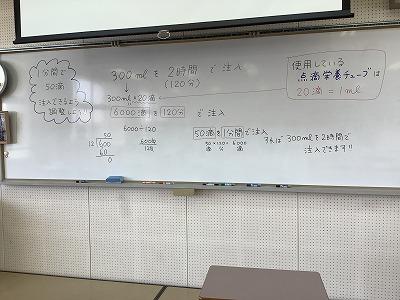 1分間で
50滴
注入できるよう
調整しよう
300mlを2時間で注入
(120分)
300ml×20滴
6000滴を120分で注入
6000÷120
50
12)600
60
0
6000滴
120分
50滴を1分間で注入
50×120=6000
滴 分 滴
すれば 300mlを2時間で
注入できます!!
使用している
点滴栄養チューブは
20滴=1ml